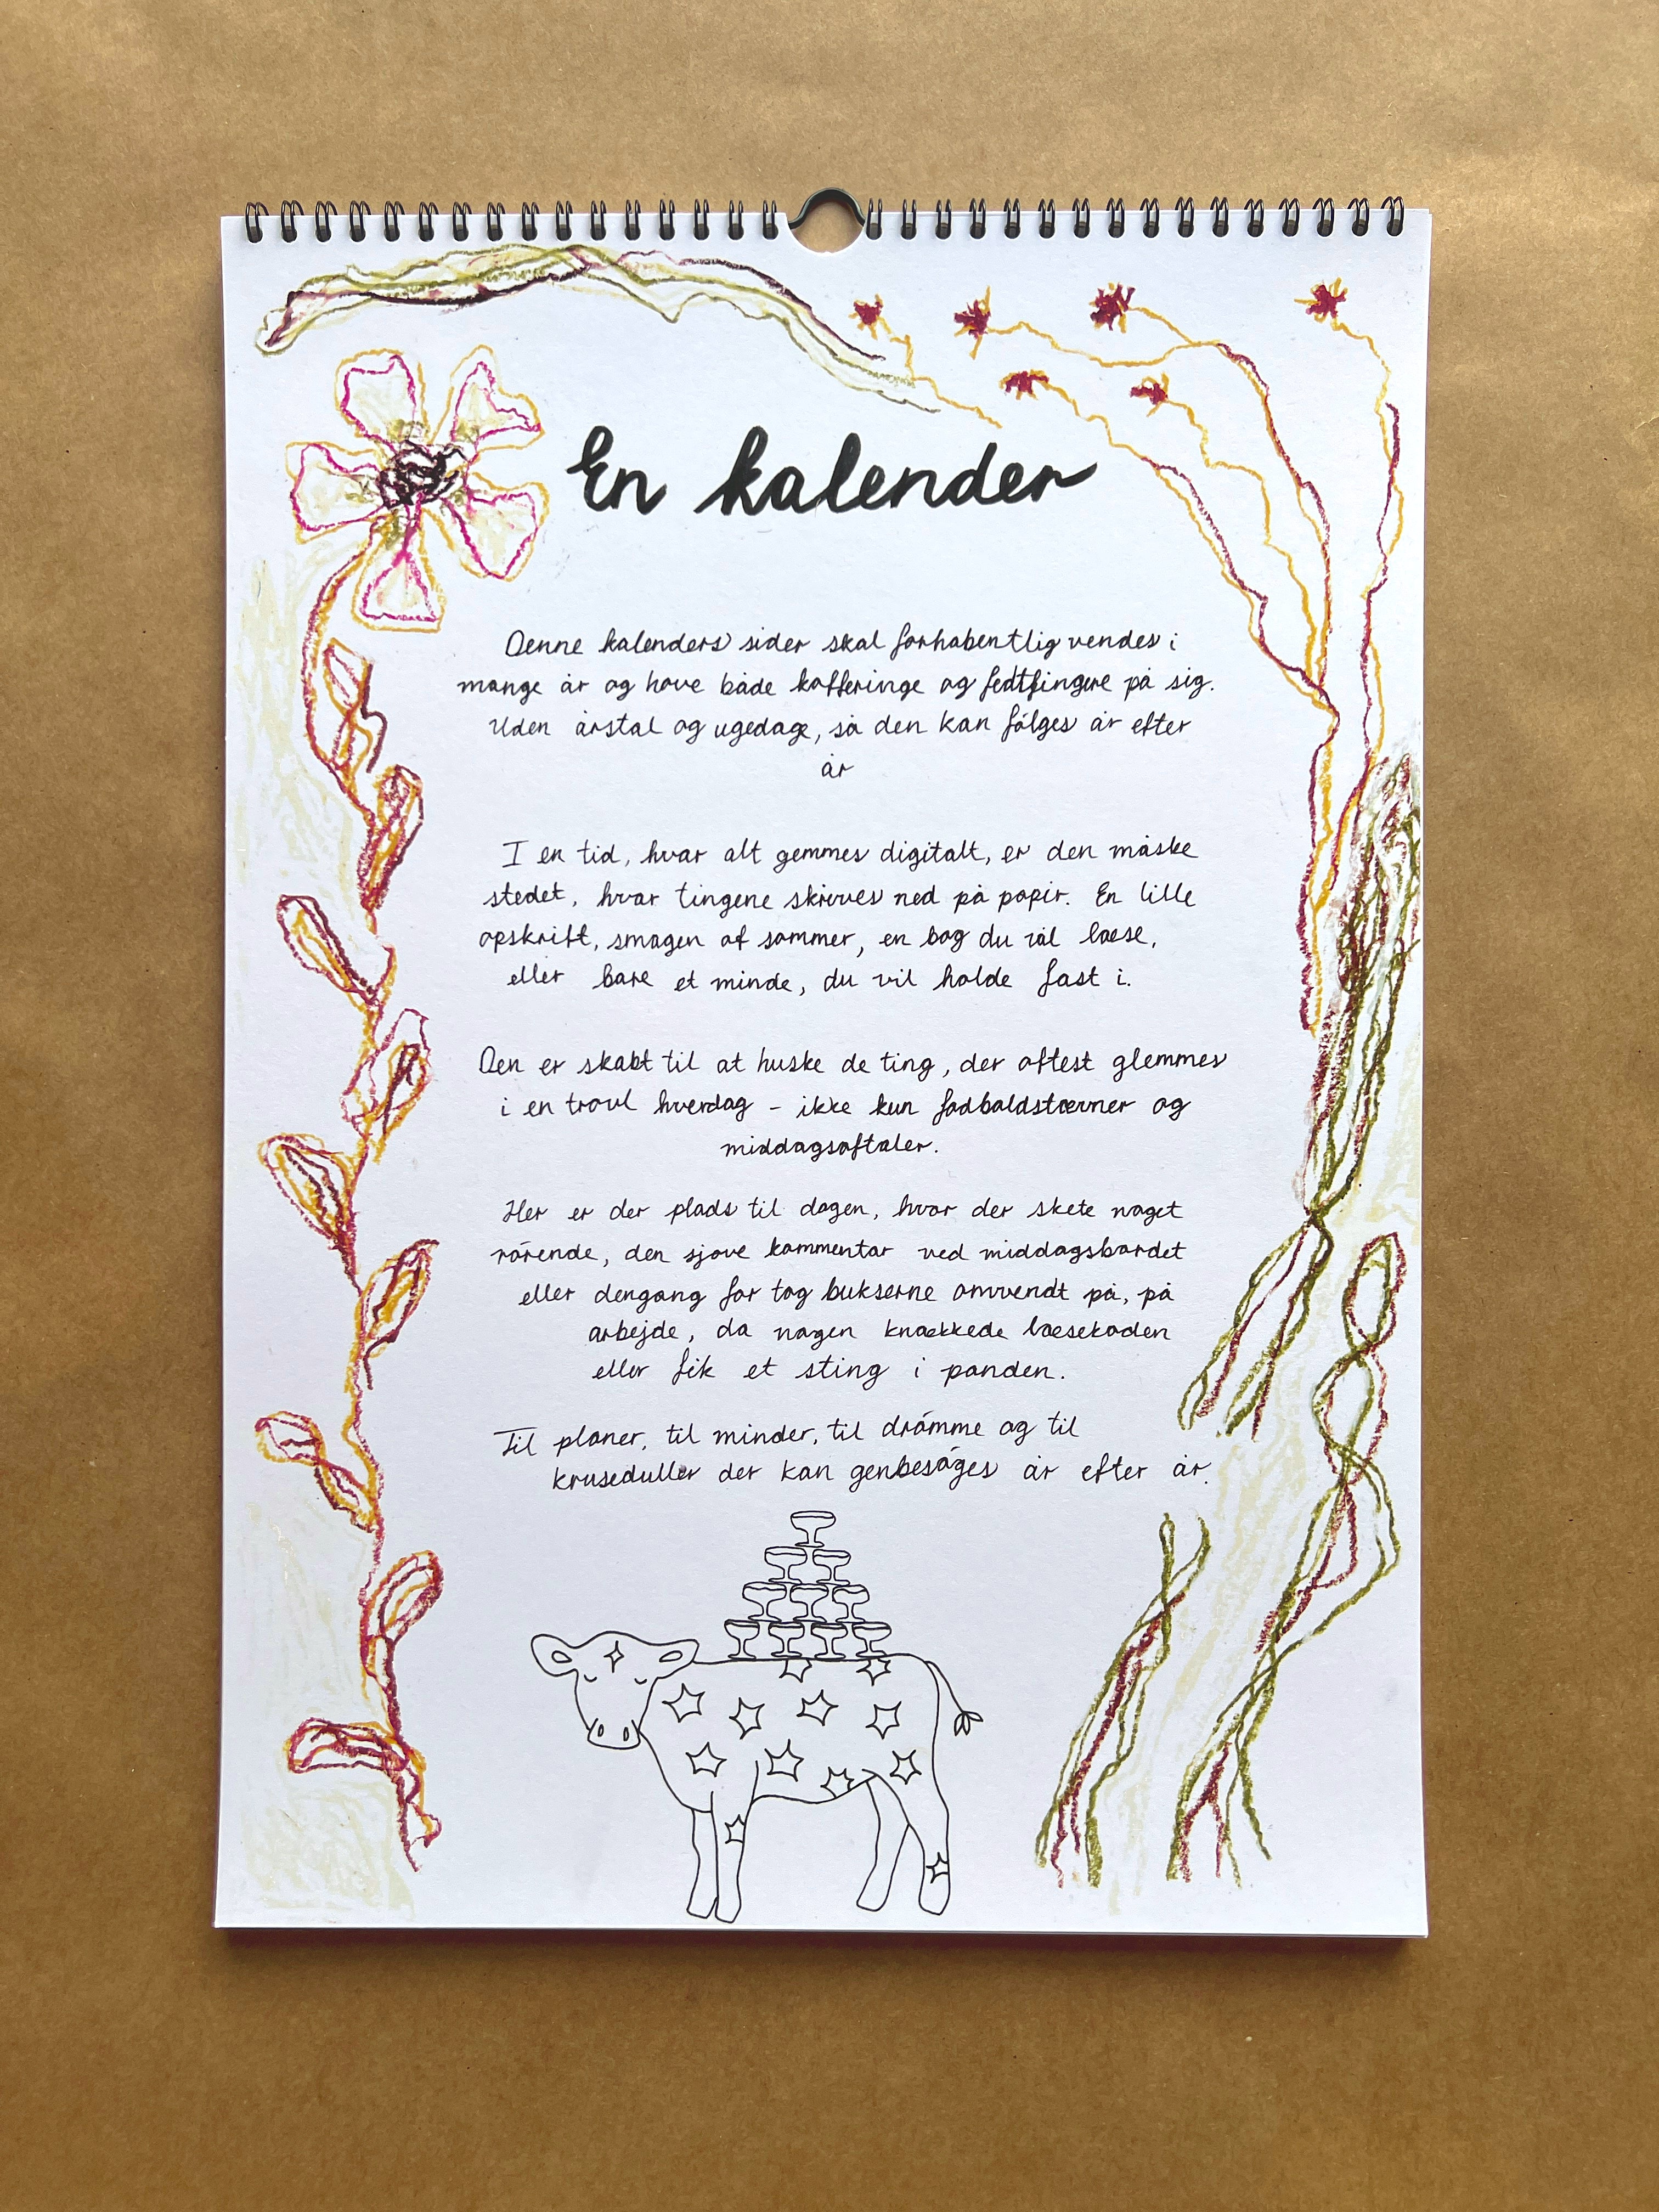 En kalender
Denne kalenders sider skal forhabentlig vendes i
mange år og have både kafferinge og fedtfingre på sig.
Uden årstal og ugedage, så den kan følges år efter
år
I en tid, hvor alt gemmes digitalt, er den måske
stedet, hvor tingene skrives ned på papir. En lille
opskrift, smagen af sommer, en bog du vil læse,
eller bare et minde, du vil holde fast i.
Den er skabt til at huske de ting, der oftest glemmes
i en travl hverdag - ikke kun fodboldstævner og
middagsaftaler.
Her er der plads til dagen, hvor der skete noget
rørende, den sjove kommentar ved middagsbordet
eller dengang far tog bukserne omvendt på, på
arbejde, da nogen knækkede læsekoden
eller fik et sting i panden.
Til planer, til minder, til drømme og til
kruseduller der kan genbesøges år efter år.